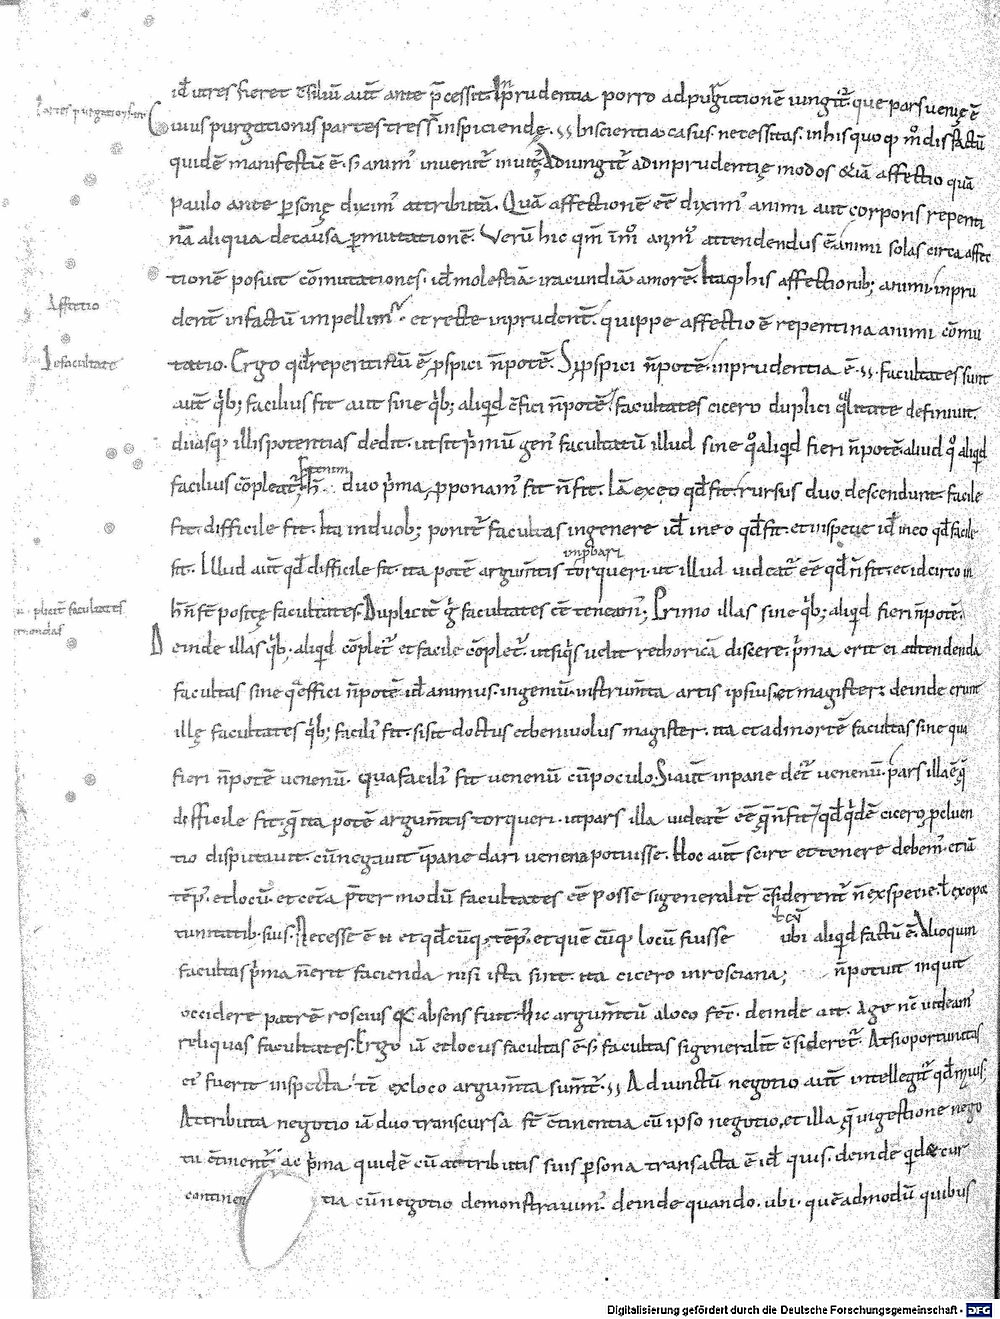 partes purgationis
id utres fieret consiliū aut̄ ante p̄cessit. Inprudentia porro ad purgationē iungit̄ que pars uenię ē
Cuius purgationis partes tres s̄ inspiciendę. Inscientia casus. necessitas. in his quoq; m̊ dis factū
quidē manifestū ē. s; anim' inuenit̄ inuit'. Adiungit̄ ad inprudentię modos & iā affectio quā
paulo ante p̱sonę dixim' attributā. Quā affectionē eē dixim' animi aut corporis repenti
nā aliqua de causa p̱mutationē. Verū hic qm̄ animi solas circa affec
tionē posuit cōmutationes. id molestiā iracundiā amorē. Itaq; his affectionib; animi inpru
Affectio
dent̄ in factū impellim'. et recte inprudent̄. quippe affectio ē repentina animi cōmu
De facultate
tatio. Ergo qđ repentinū ē p̱spici n̄ potē. Si p̱spici n̄ potē. inprudentia ē. Facultates sunt
aut̄ q'b; facilius fit aut sine q'b; aliqđ c̄fici n̄ potē. facultates cicero duplici q̃litate definiuit.
duasq; illis potentias dedit. ut sit p'mū gen' facultatū illud sine q̊ aliqđ fieri n̄ potē. aliud q̊ aliqđ
facilius cōpleat̄. duo p'ma p̱ponam' fit n̄ fit. Iā ex eo qđ fit. rursus duo descendunt. facile
fit. difficile fit. Ita in duob; ponit̄ facultas in genere id in eo qđ fit. et in specie id in eo qđ facile
inprobari
fit. Illud aut̄ qđ difficile fit. ita potē argum̄tis torqueri. ut illud uideat̄ eē qđ n̄ fit. et idcirco in
h' n̄ s̄ positę facultates. Duplicit̄ g̊ facultates c̄tineam'. Primo illas sine q'b; aliqđ fieri n̄ potē.
Deinde illas q'b; aliqđ cōplet̄ et facile cōplet̄. ut si q's uelit rethoricā discere. p'ma erit ei attendenda
facultas sine q̃ effici n̄ potē. id animus. ingeniū. instrum̄ta artis ipsius. et magister; deinde erunt
illę facultates q'b; facili' fit. si sit doctus et beniuolus magister. ita et ad mortē facultas sine qua
fieri n̄ potē uenenū. qua facili' fit uenenū cū poculo. Si aut̄ in pane det̄ uenenū. pars illa ē q̃
difficile fit. q̃ ita potē argum̄tis torqueri. ut pars illa uideat̄ eē q̃ n̄ fit. qđ q'dē cicero p̱ cluen
tio disputauit. cū negauit īpane dari uenena potuisse. Hoc aut̄ scire et tenere debem'. etiā
tēp'. et locū. et cet̄a p̄ter modū facultates eē posse si generalit̄ c̄siderent̄ n̄ ex specie. t̄ ex opor
tunitatib' suis. Necesse ē et qđcūq; tēp'. et quē cūq; locū fuisse ubi aliqđ factū ē. Alioquin
facultas p'ma n̄ erit facienda nisi ista sint. ita cicero in rosciana; n̄ potuit inquit
occidere patrē roscius q absens fuit. Hic argum̄tū a loco fec̄. deinde ait. Age nc̄ uideam'
reliquas facultates. Ergo iā et locus facultas ē. s; facultas si generalit̄ c̄sideret̄. At si oportunitas
ei' fuerit inspecta. t̄c̄ ex loco argum̄ta sum̄t̄. Adiunctū negotio aut̄ intellegit̄ qđ
Attributa negotio iā duo transcursa s̄t c̄tinentia cū ipso negotio, et illa q̃ in gestione nego
tii c̄tinent̄. ac p'ma quidē cū attributis suis p̱sona transacta ē id quis. deinde qđ & cur
continen tia cū negotio demonstrauim'. deinde quando. ubi. quēadmodū quibus
Digitalisierung gefördert durch die Deutsche Forschungsgemeinschaft - DFG